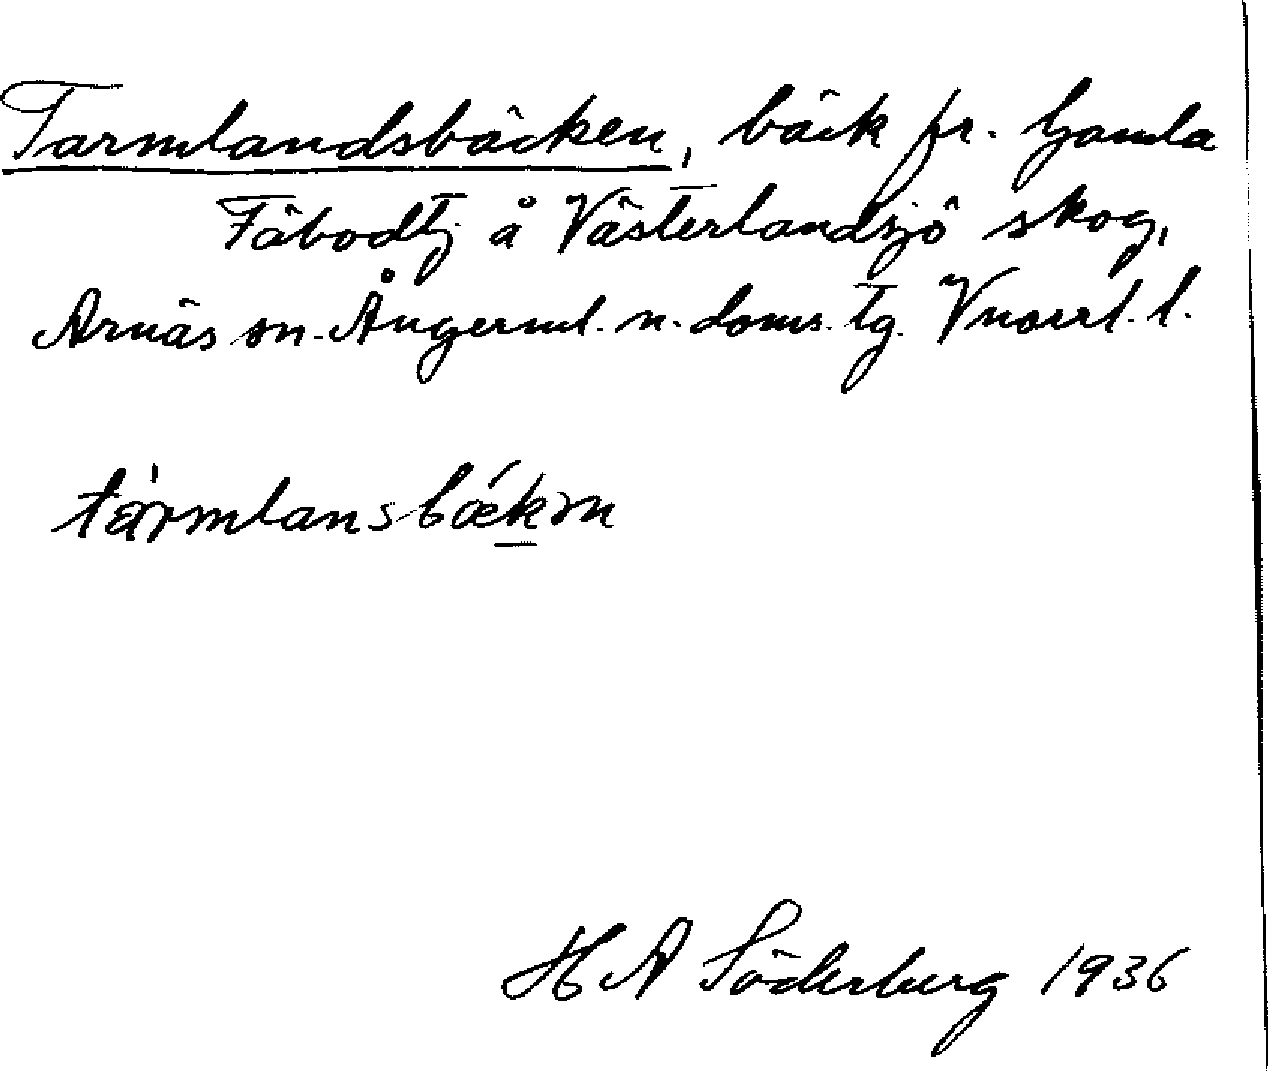 Tarmlandsbäcken, bäck fr. Gamla
Fäbodtj å Västerlandsjö skog,
Arnäs sn. Ångerml. n. doms. tg. Vnorrl. l.
tármlansbǽkən
H A Söderberg 1936